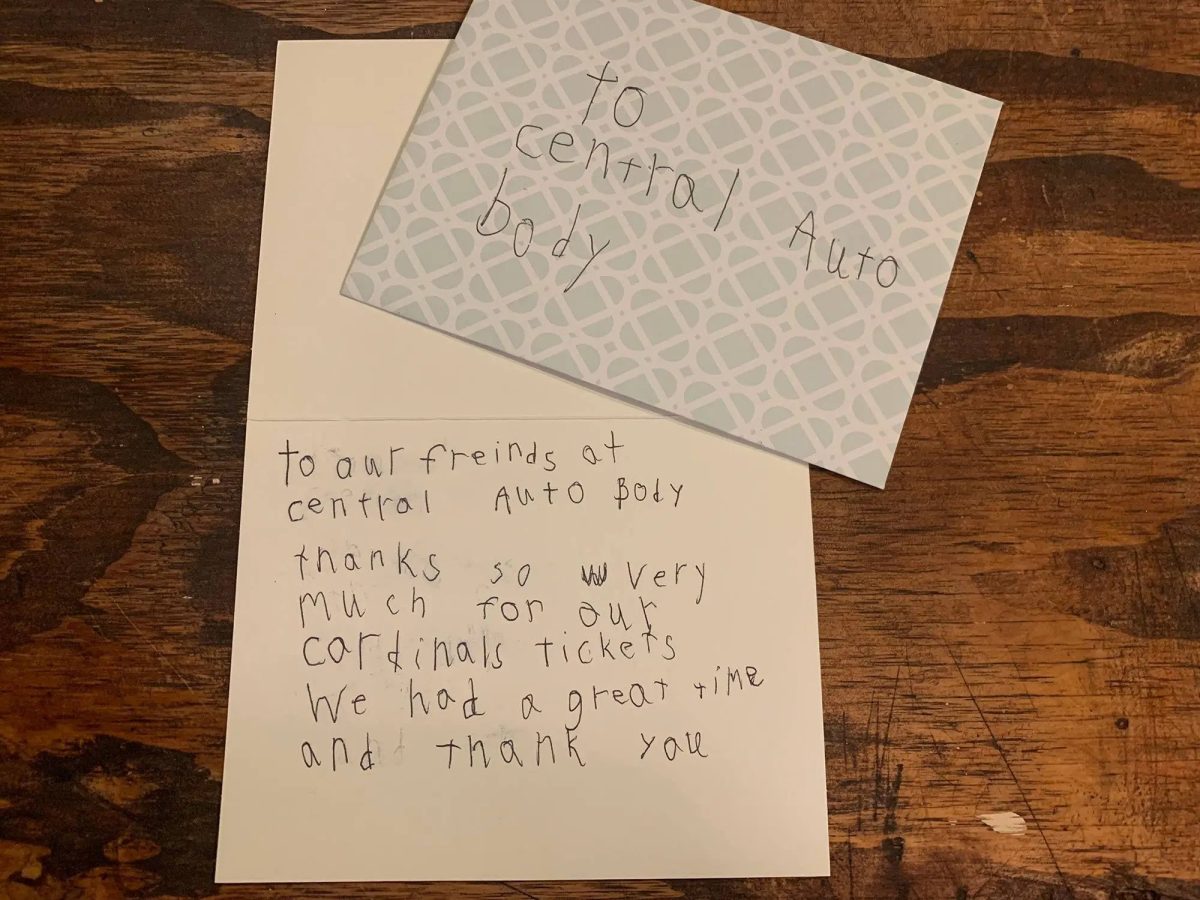 to
central Auto
body
to our freinds at
central Auto Body
thanks so very
much for our
cardinals tickets
We had a great time
and thank you